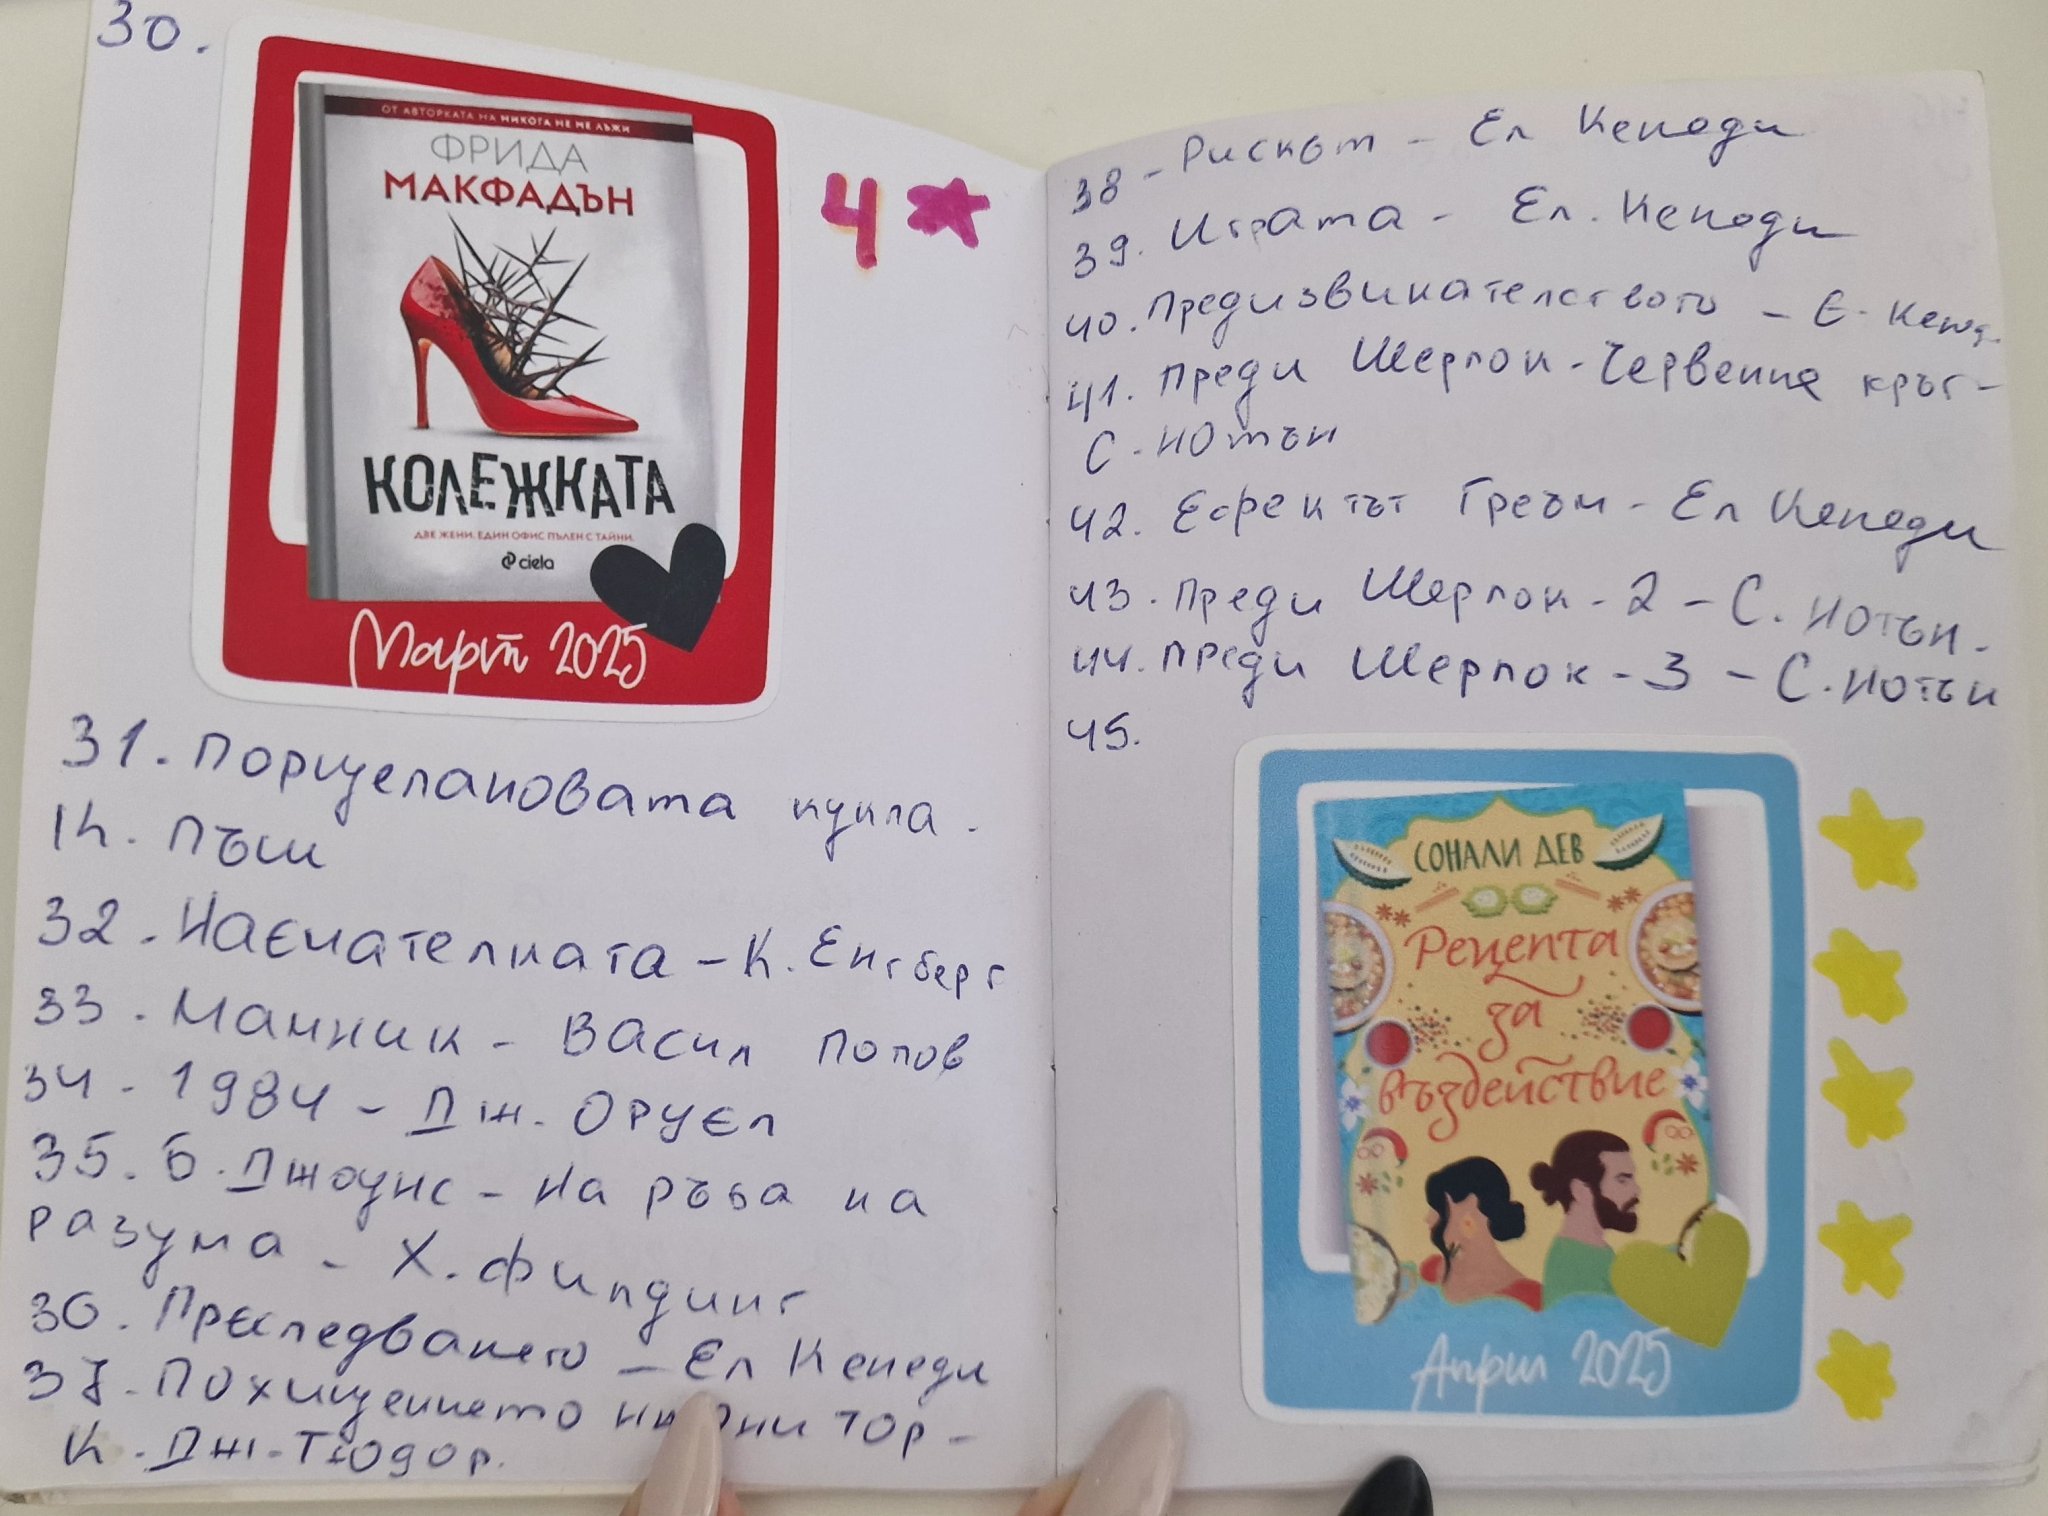 30.
ОТ АВТОРКАТА НА НИКОГА НЕ МЕ ЛЪЖИ
ФРИДА
МАКФАДЪН
КОЛЕЖКАТА
ДВЕ ЖЕНИ. ЕДИН ОФИС ПЪЛЕН С ТАЙНИ.
ciela
Март 2025
4
31. Порцелановата кукла -
К. Пъш
32. Наемателката - К. Енгберг
33. Мамник - Васил Попов
34 - 1984 - Дж. Оруел
35. Б. Джоунс - На ръба на
разума - Х. Филдинг
36. Преследването - Ел Кенеди
37. Похищението на Ани Тор -
К. Дж. Тюдор.
38 - Рискът - Ел Кенеди
39. Играта - Ел. Кенеди
40. Предизвикателството - Е. Кенед.
41. Преди Шерлок - Червения кръг -
С. Нотън
42. Ефектът Греъм - Ел Кенеди
43. Преди Шерлок - 2 - С. Нотън.
44. Преди Шерлок - 3 - С. Нотън
45.
СОНАЛИ ДЕВ
Рецепта
за
въздействие
Април 2025